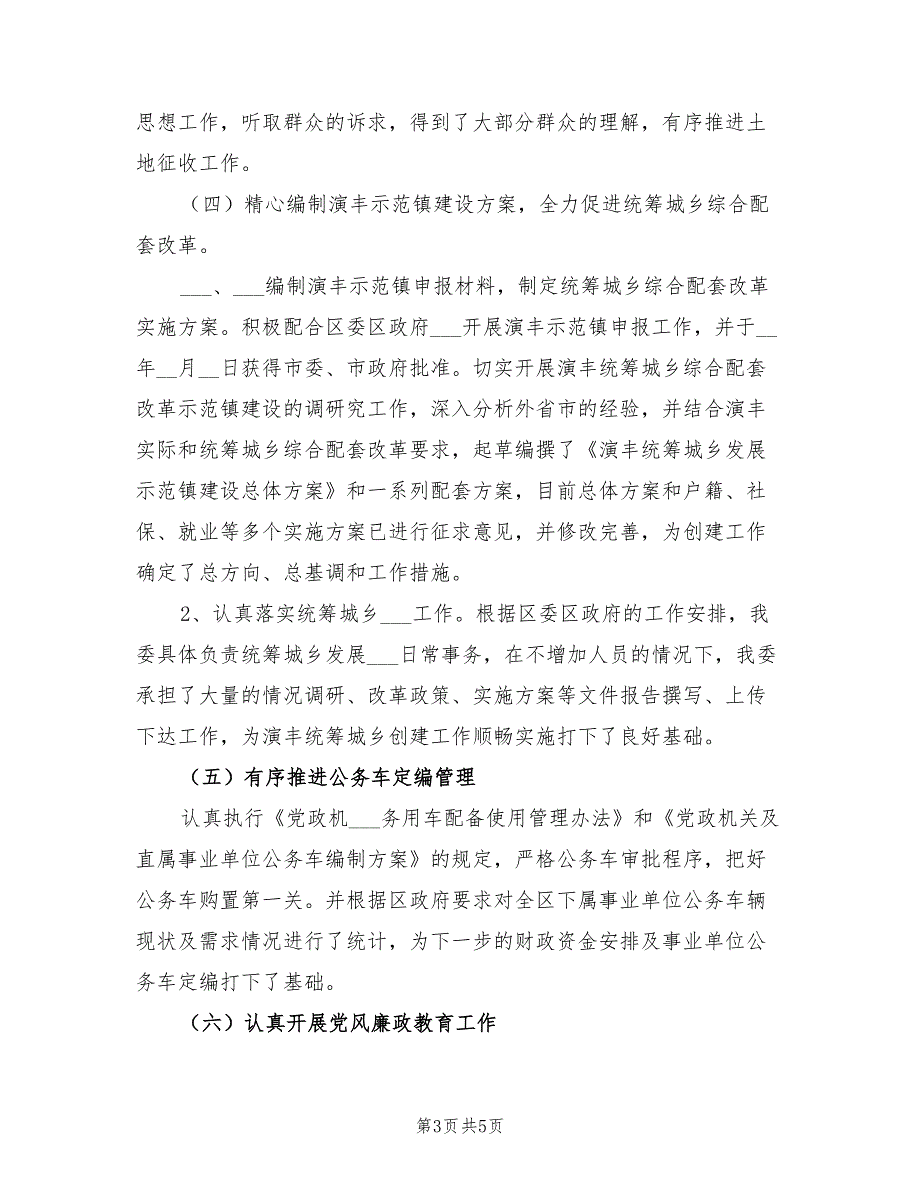 思想工作，听取群众的诉求，得到了大部分群众的理解，有序推进土
地征收工作。
（四）精心编制演丰示范镇建设方案，全力促进统筹城乡综合配
套改革。
___、___编制演丰示范镇申报材料，制定统筹城乡综合配套改革
实施方案。积极配合区委区政府___开展演丰示范镇申报工作，并于__
年__月__日获得市委、市政府批准。切实开展演丰统筹城乡综合配套
改革示范镇建设的调研究工作，深入分析外省市的经验，并结合演丰
实际和统筹城乡综合配套改革要求，起草编撰了《演丰统筹城乡发展
示范镇建设总体方案》和一系列配套方案，目前总体方案和户籍、社
保、就业等多个实施方案已进行征求意见，并修改完善，为创建工作
确定了总方向、总基调和工作措施。
2、认真落实统筹城乡___工作。根据区委区政府的工作安排，我
委具体负责统筹城乡发展___日常事务，在不增加人员的情况下，我委
承担了大量的情况调研、改革政策、实施方案等文件报告撰写、上传
下达工作，为演丰统筹城乡创建工作顺畅实施打下了良好基础。
（五）有序推进公务车定编管理
认真执行《党政机___务用车配备使用管理办法》和《党政机关及
直属事业单位公务车编制方案》的规定，严格公务车审批程序，把好
公务车购置第一关。并根据区政府要求对全区下属事业单位公务车辆
现状及需求情况进行了统计，为下一步的财政资金安排及事业单位公
务车定编打下了基础。
（六）认真开展党风廉政教育工作
第3页共5页